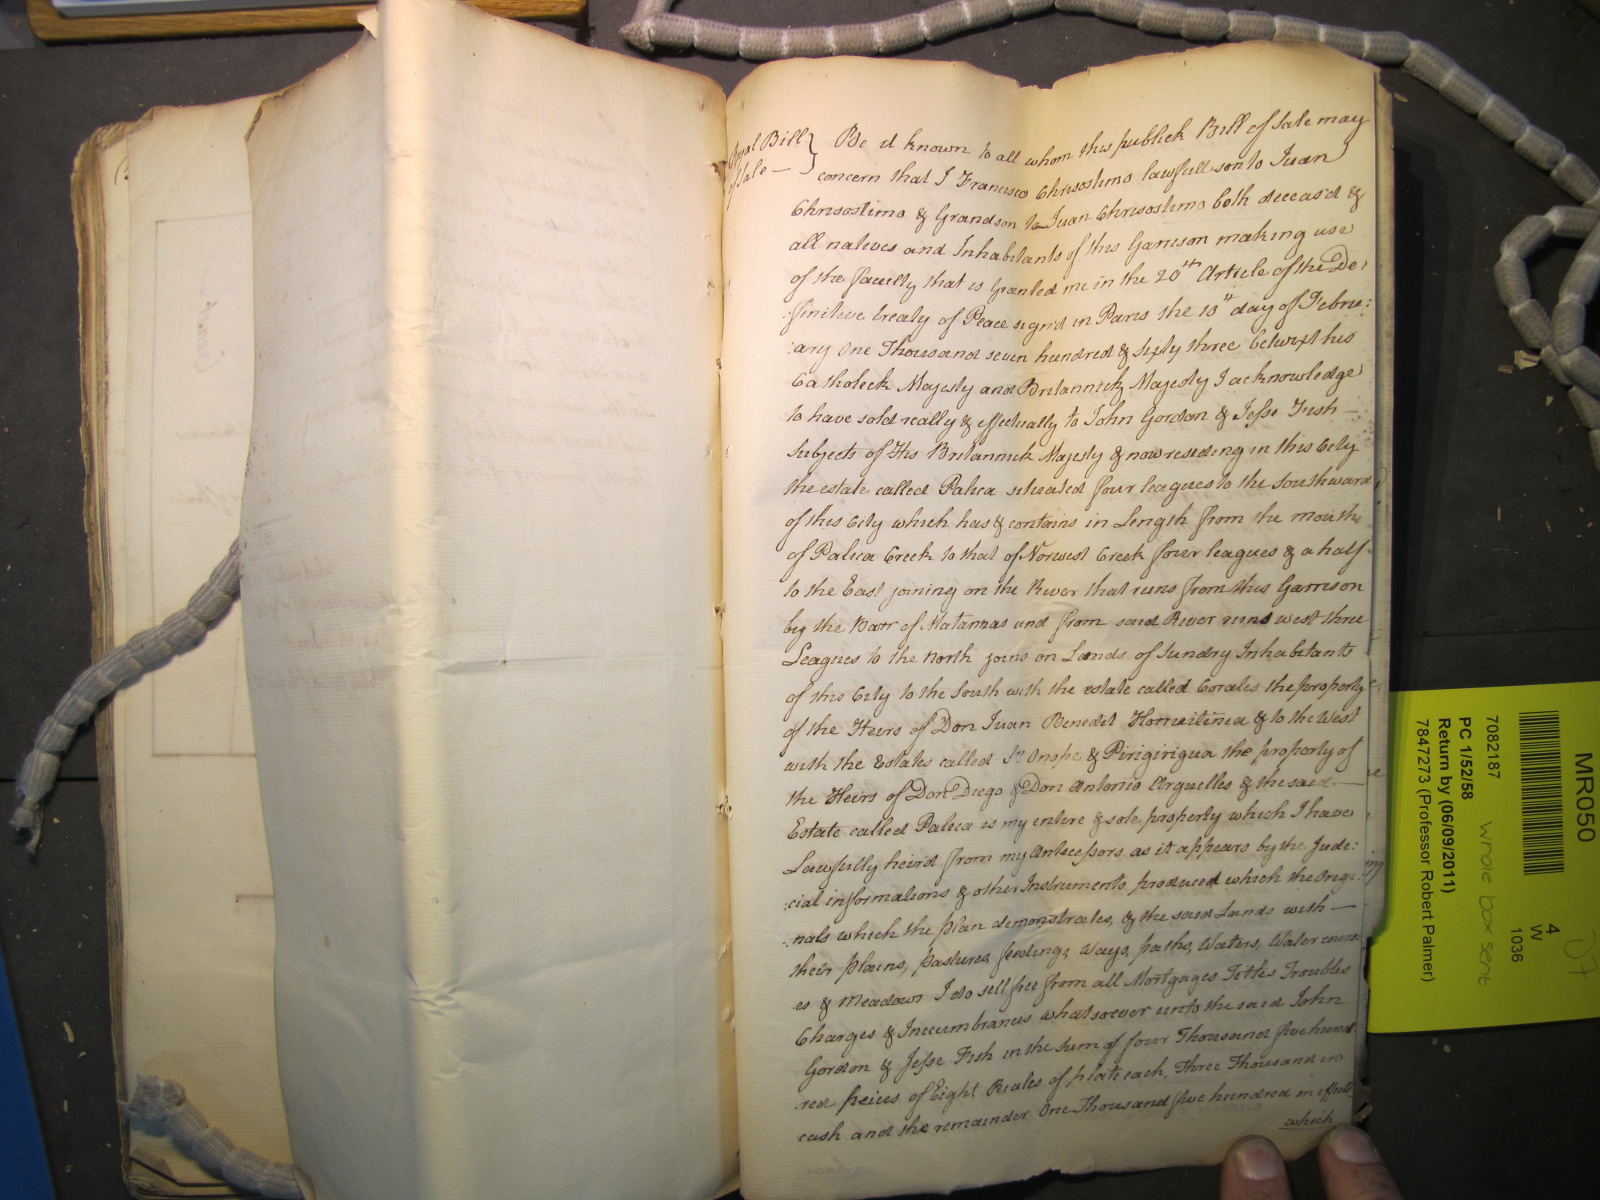 Bill
of Sale —
Be it known to all whom this publick Bill of Sale may
concern that I Francisco Chrisostimo lawfull son to Juan
Chrisostimo & Grandson to Juan Chrisostimo both deceas'd &
all natives and Inhabitants of this Garrison making use
of the faculty that is Granted me in the 20th Article of the De:
:finitive treaty of Peace sign'd in Paris the 10th day of Febru:
:ary One Thousand seven hundred & sixty three betwixt his
Catholeck Majesty and Britannick Majesty I acknowledge
to have sold really & effectually to John Gordon & Jesse Fish —
Subjects of His Britannick Majesty & now residing in this City
the estate called Palica situated four leagues to the Southward
of this City which has & contains in Length from the mouth
of Palica Creek to that of Norwest Creek four leagues & a half
to the East joining on the River that runs from this Garrison
by the Barr of Matannas and from said River runs west three
Leagues to the North joins on Lands of Sundry Inhabitants
of this City to the South with the estate called Corales the property
of the Heirs of Don Juan Benedet & to the West
with the Estates called St. Onope & Pirigirigua the property of
the Heirs of Don Diego & Don Antonio Arguelles & the said —
Estate called Palica is my entire & sole property which I have
Lawfully heir'd from my Antecessors as it appears by the Jude:
:cial informations & other Instruments produced which the Origi:
:nals which the plan demonstrates, & the said Lands with —
their plains, pastures, feedings, Ways, paths, Waters, Water cours:
es & Meadows I do sell free from all Mortgages Titles Troubles
Charges & Incumbrances whatsoever unto the said John
Gordon & Jesse Fish in the Sum of four Thousand five hund:
:red peices of Eight Reales of plate each, Three Thousand in
cash and the remainder One Thousand five hundred in effects
which
MR050
4
W
1036
7082187
PC 1/52/58
Return by (06/09/2011)
7847273 (Professor Robert Palmer)
whole box sent